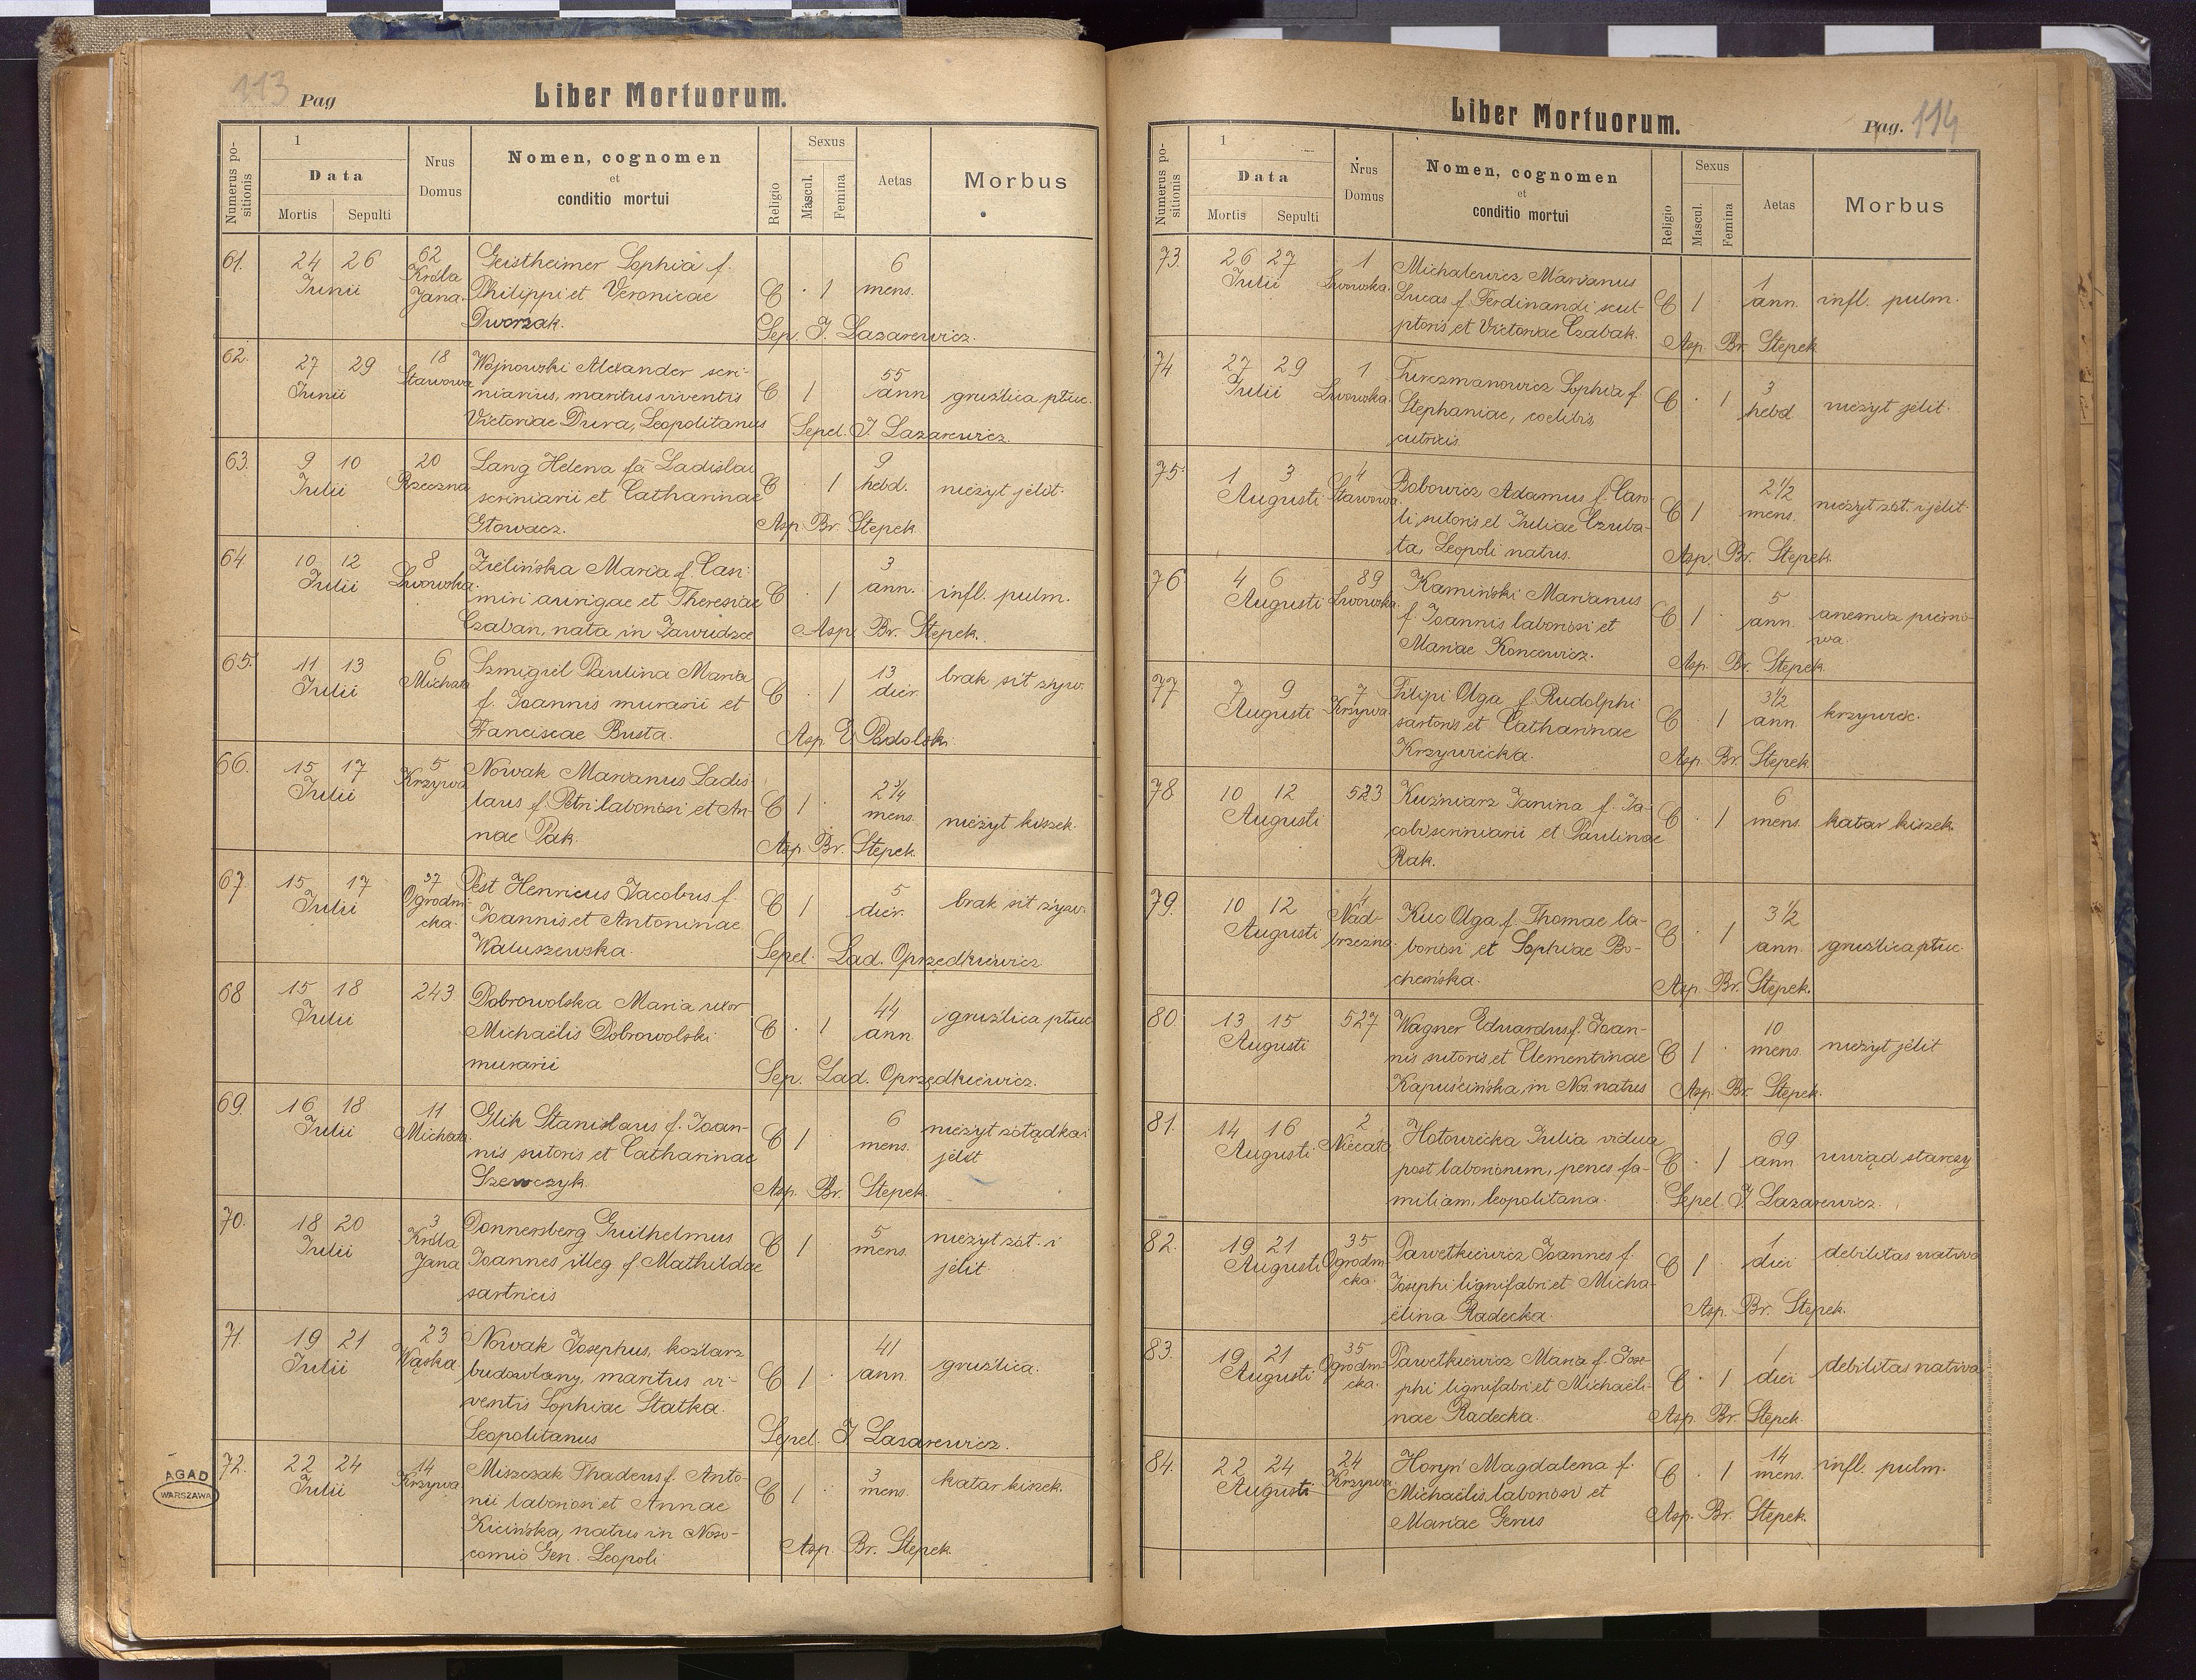 113 Pag
Liber Mortuorum.
Numerus positionis
1
Data
Mortis Sepulti
Nrus Domus
Nomen, cognomen
et
conditio mortui
Religio
Sexus
Mascul. Femina
Aetas
Morbus
61. 24 26 Junii 62 Króla Jana
Geistheimer Sophia f.
Philippi et Veronicae
Dworzak.
C · 1 6 mens.
Sep. J. Lazarewicz.
62. 27 29 Junii 18 Stawowa
Wojnowski Alexander scri-
niarius, maritus viventis
Victoriae Dura, Leopolitanus
C 1 55 ann gruźlica płuc.
Sepel. J. Lazarewicz.
63. 9 10 Julii 20 Rzeczna
Lang Helena fa Ladislai
scriniarii et Catharinae
Głowacz.
C · 1 9 hebd. nieżyt jelit.
Asp. Br. Stepek
64 10 12 Julii 8 Lwowska.
Zielińska Maria f. Casi-
miri aurigae et Theresiae
Czaban, nata in Zawidcze
C · 1 3 ann. infl. pulm.
Asp. Br. Stepek.
65. 11 13 Julii 6 Michała
Szmigiel Paulina Maria
f. Joannis murarii et
Franciscae Busta.
C · 1 13 dier. brak sił żyw.
Asp. E. Podolski
66. 15 17 Julii 5 Krzywa
Nowak Marianus Ladis-
laus f. Petri laboriosi et An-
nae Pak.
C 1 · 2 1/4 mens. nieżyt kiszek.
Asp. Br. Stepek.
67. 15 17 Julii 37 Ogrodni-
cka.
Pest Henricus Jacobus f.
Joannis et Antoninae
Waluszewska.
C 1 5 dier. brak sił żyw.
Sepel. Lad. Oprzędkiewicz
68 15 18 Julii 243
Dobrowolska Maria uxor
Michaëlis Dobrowolski
murarii
C · 1 44 ann gruźlica płuc
Sep. Lad. Oprzędkiewicz.
69. 16 18 Julii 11 Michała.
Glik Stanislaus f. Joan-
nis sutoris et Catharinae
Szewczyk
C 1 6 mens. nieżyt żołądka i
jelit
Asp. Br. Stepek.
70. 18 20 Julii 3 Króla Jana
Donnersberg Guilhelmus
Joannes illeg f Mathildae
sartricis
C 1 5 mens. nieżyt żoł. i
jelit.
71. 19 21 Julii 23 Wąska
Nowak Josephus, koźlarz
budowlany, maritus vi-
ventis Sophiae Statka.
Leopolitanus
C 1 · 41 ann gruźlica.
Sepel. J Lazarewicz.
72. 22 24 Julii 14 Krzywa
Miszczak Thadeus f. Anto-
nii laboriosi et Annae
Kicińska, natus in Noso-
comio Gen. Leopoli
C 1 · 3 mens. katar kiszek.
Asp. Br. Stepek.
AGAD
WARSZAWA
Liber Mortuorum.
Pag. 114
Numerus positionis
1
Data
Mortis Sepulti
Nrus Domus
Nomen, cognomen
et
conditio mortui
Religio
Sexus
Mascul. Femina
Aetas
Morbus
73. 26 27 Julii 1 Lwowska.
Michalewicz Marianus
Lucas f. Ferdinandi scul-
ptoris et Victoriae Czabak.
C 1 · 1 ann. infl. pulm.
Asp. Br. Stepek
74 27 29 Julii 1 Lwowska.
Turczmanowicz Sophia f.
Stephaniae, coelibis,
C · 1 3 hebd nieżyt jelit.
75. 1 3 Augusti 4 Stawowa.
Bobowicz Adamus f. Caro-
li sutoris et Juliae Czuba-
ta, Leopoli natus.
C 1 2 1/2 mens. nieżyt żoł. i jelit.
Asp. Br. Stepek.
76. 4 6 Augusti 89 Lwowska.
Kamiński Marianus
f. Joannis laboriosi et
Mariae Koncewicz.
C 1 · 5 ann. anemia
Asp. Br. Stepek.
77 7 9 Augusti 7 Krzywa.
Filipi Olga f. Rudolphi
sartoris et Catharinae
Krzywicka.
C · 1 3 1/2 ann
Asp. Br. Stepek.
78. 10 12 Augusti 523
Kuźniarz Janina f. Ja-
cobi scriniarii et Paulinae
Rak.
C · 1 6 mens. katar kiszek.
79. 10 12 Augusti 4 Nad-
brzeżna.
Kuc Olga f. Thomae la-
boriosi et Sophiae Bo-
cheńska.
C · 1 3 1/2 ann. gruźlica płuc.
Asp. Br. Stepek.
80. 13 15 Augusti 527
Wagner Eduardus f. Joan-
nis sutoris et Clementinae
Kapuścińska, in Nos. natus
C 1 · 10 mens. nieżyt jelit
Asp. Br. Stepek.
81. 14 16 Augusti 2 Niecała
Hotowicka Julia vidua
post laboriosum, penes fa-
miliam, leopolitana.
C · 1 69 ann uwiąd starczy
Sepel. J. Lazarewicz.
82. 19 21 Augusti 35 Ogrodni-
cka.
Pawełkiewicz Joannes f.
Josephi lignifabri et Micha-
ëlina Radecka.
C 1 · 1 diei debilitas nativa
Asp. Br. Stepek.
83. 19 21 Augusti 35 Ogrodni-
cka.
Pawełkiewicz Maria f. Jose-
phi lignifabri et Michaëli-
nae Radecka.
C · 1 1 diei debilitas nativa
Asp. Br. Stepek.
84. 22 24 Augusti 24 Krzywa.
Horyń Magdalena f.
Michaëlis laboriosi et
Mariae Gerus
C · 1 14 mens. infl. pulm.
Asp. Br. Stepek.